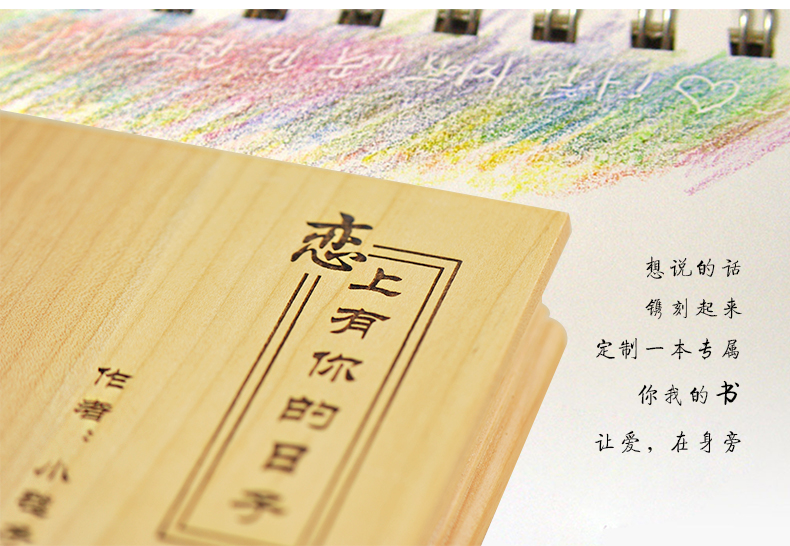 恋上有你的日子
作者：小
想说的话
镌刻起来
定制一本专属
你我的书
让爱，在身旁